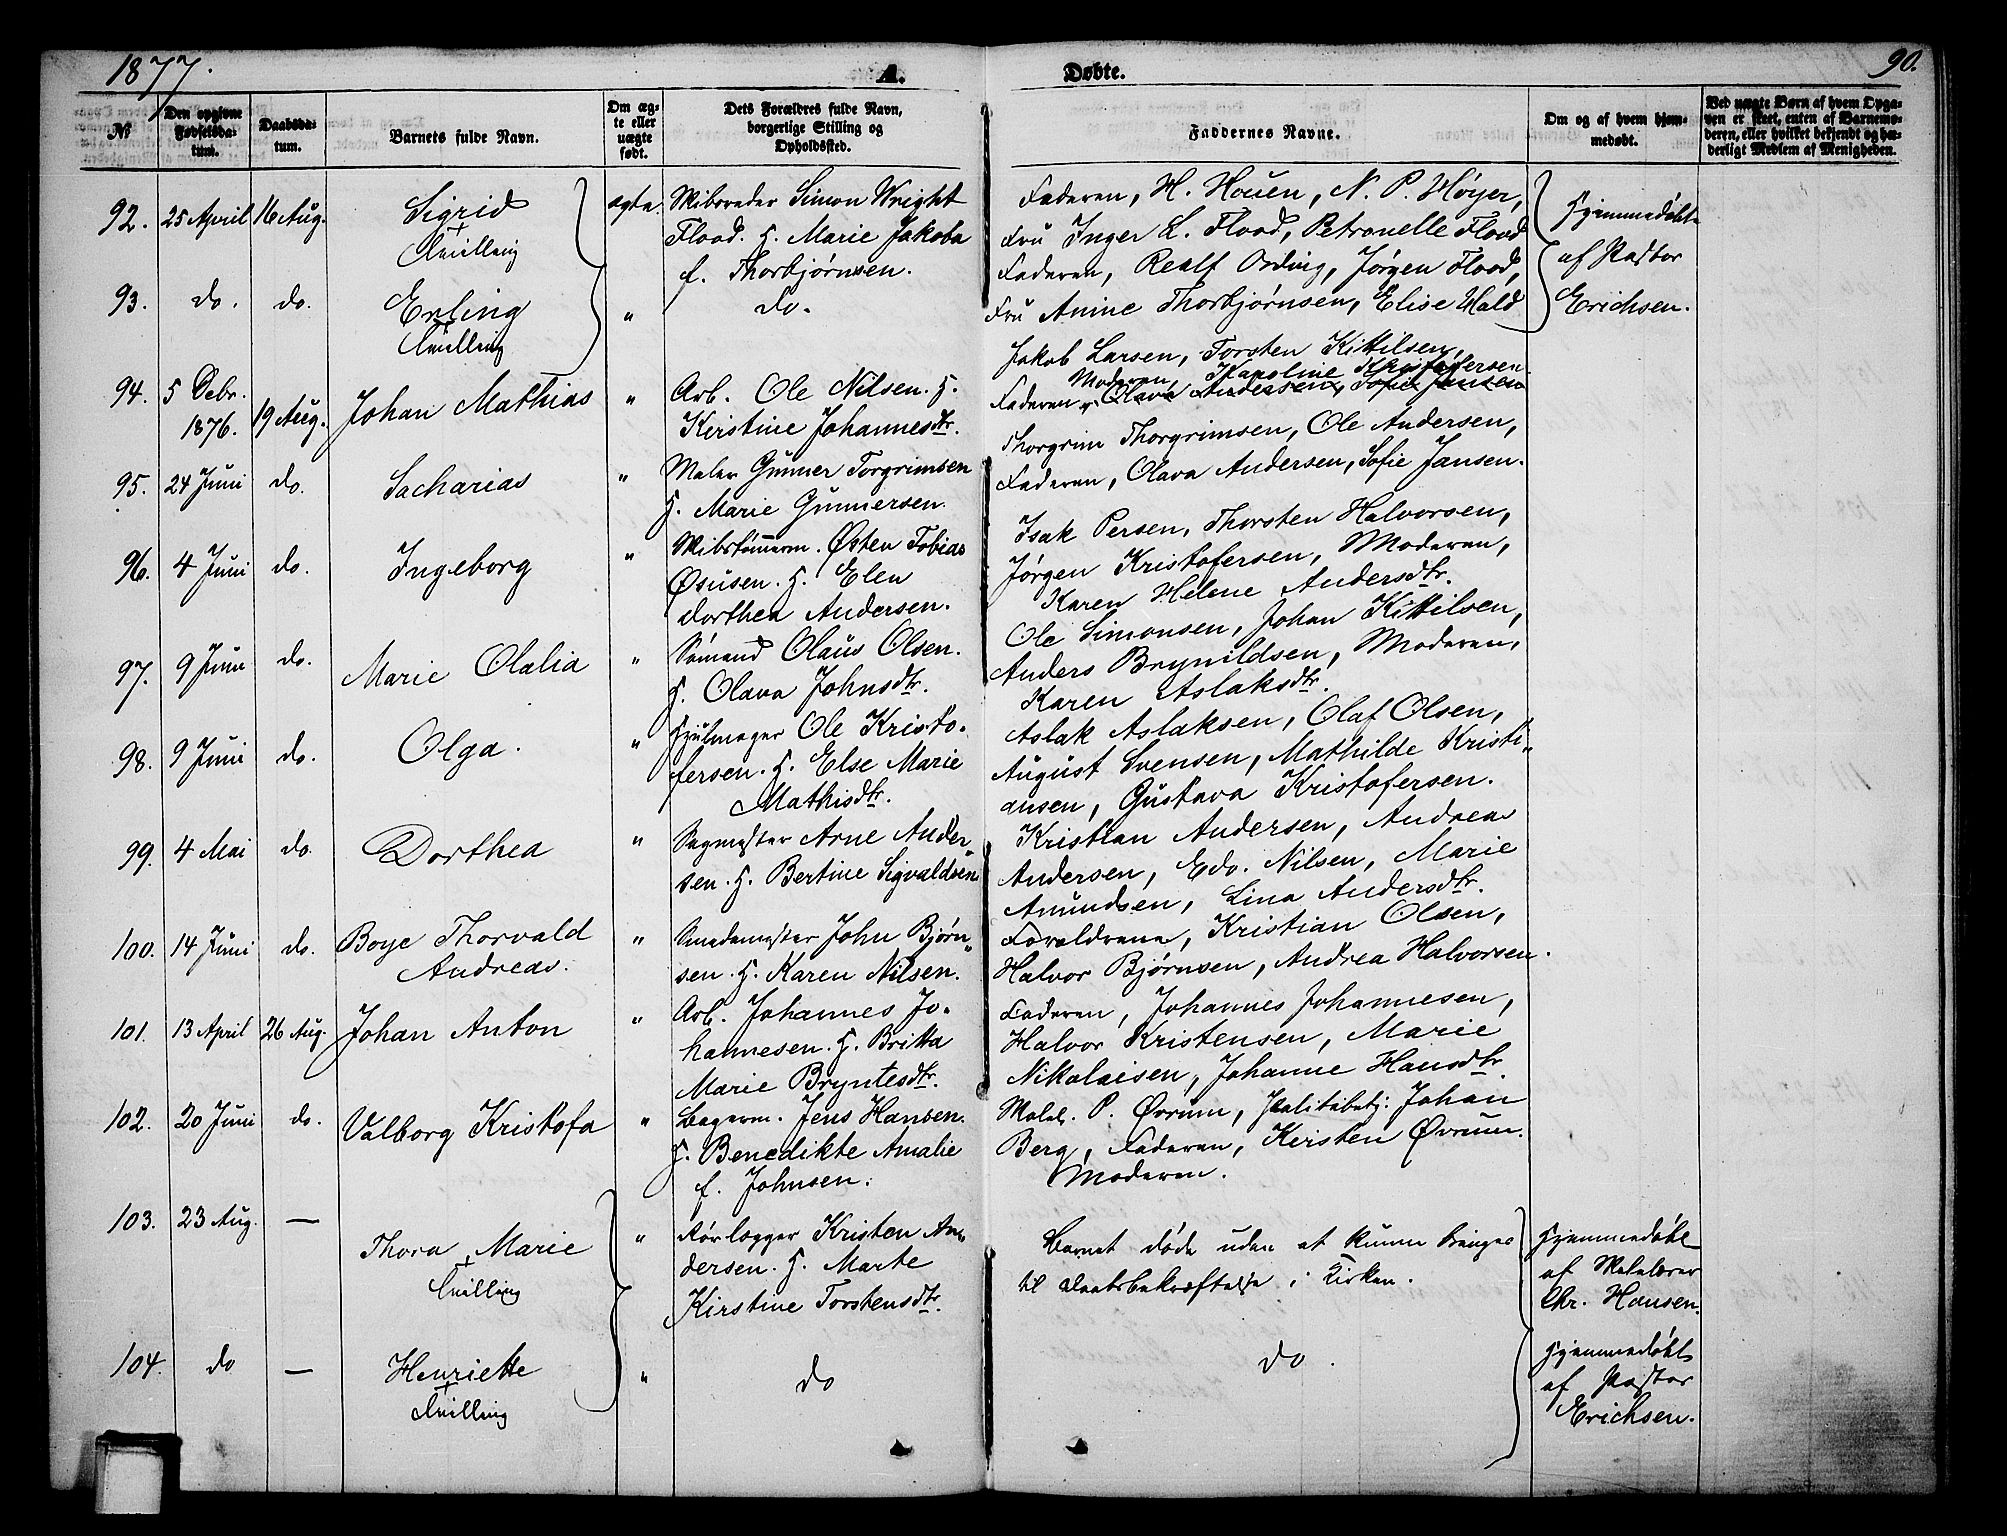 1877.
A.
Døbte.
90.
№
Den opgivne Fødselsdatum.
Daabsdatum.
Barnets fulde Navn.
Om ægte eller uægte født.
Dets Forældres fulde Navn, borgerlige Stilling og Opholdssted.
Faddernes Navne.
Om og af hvem hjemmedøbt.
Ved uægte Børn af hvem Opgaven er skeet, enten af Barnemoderen, eller hvilket bekjendt og hæderligt Medlem af Menigheden.
92. 25 April 16 Aug. Sigrid + Tvilling ægte Skibsreder Simon Wright
Flood. H. Marie Jakoba
f. Thorbjørnsen.
Faderen, H. Houen, N. P. Höyer,
Fru Inger L. Flood, Petronelle Flood
Hjemmedøbt
af Pastor
Erichsen.
93. do. do. Erling + Tvilling " do.
Faderen, Realf Ording, Jørgen Flood,
Fru Anine Thorbjørnsen, Elise Hald
94. 5 Debr. 1876. 19 Aug. Johan Mathias " Arb. Ole Nilsen. H.
Kirstine Johannesdtr.
Jakob Larsen, Torsten Kittilsen,
Moderen, Karoline Kristofersen.
Faderen, Olava Andersen, Sofie Jansen
95. 24 Juni do. Sacharias " Maler Gunner Torgrimsen
H. Marie Gunnersen.
Thorgrim Thorgrimsen, Ole Andersen,
Faderen, Olava Andersen, Sofie Jansen.
96. 4 Juni do. Ingeborg " Skibstømerm. Østen Tobias
Øsusen. H. Elen
Dorthea Andersen.
Isak Persen, Thorsten Halvorsen,
Jørgen Kristofersen, Moderen,
Karen Helene Andersdtr.
97. 9 Juni do. Marie Olalia " Sømand Olaus Olsen.
H. Olava Johnsdtr.
Ole Simonsen, Johan Kittilsen,
Anders Brynildsen, Moderen,
Karen Aslaksdtr.
98. 9 Juni do. Olga. " Hjulmager Ole Kristo-
fersen. H. Else Marie
Mathisdtr.
Aslak Aslaksen, Olaf Olsen,
August Svensen, Mathilde Kristi-
ansen, Gustava Kristofersen.
99. 4 Mai do. Dorthea " Sagmester Arne Ander-
sen. H. Bertine Sigvaldsen
Kristian Andersen, Andreas
Andersen, Edv. Nilsen, Marie
Amundsen, Lina Andersdtr.
100. 14 Juni do. Boye Thorvald
Andreas. " Smedemester John Bjørn-
sen. H. Karen Nilsen.
Forældrene, Kristian Olsen,
Halvor Bjørnsen, Andrea Halvorsen.
101. 13 April 26 Aug. Johan Anton " Arb. Johannes Jo-
hannesen. H. Britta
Marie Bryntesdtr.
Faderen, Johannes Johannesen,
Halvor Kristensen, Marie
Nikolaisen, Johanne Hansdtr.
102. 20 Juni do. Valborg Kristofa " Bagerm. Jens Hansen.
H. Benedikte Amalie
f. Johnsen.
P. Øvrum, Johan
Berg, Faderen, Kirsten Øvrum.
Moderen.
103. 23 Aug. — Thora Marie + Tvilling " Rørlægger Kristen An-
dersen. H. Marte
Kirstine Torstensdtr.
Barnet døde uden at kunne bringes
til Daabsbekræftelse i Kirken.
Hjemmedøbt
af
Chr. Hansen.
104. do — Henriette + Tvilling " do
do.
Hjemmedøbt
af Pastor
Erichsen.